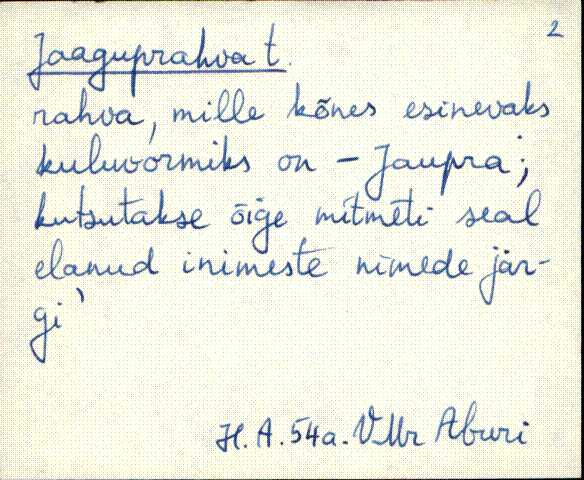 2
Jaaguprahva t.
rahva, mille kõnes esinevaks
kuluvormiks on – Jaupra;
kutsutakse õige mitmeti seal
elanud inimeste nimede jär-
gi'
H. A. 54a. VMr Aburi